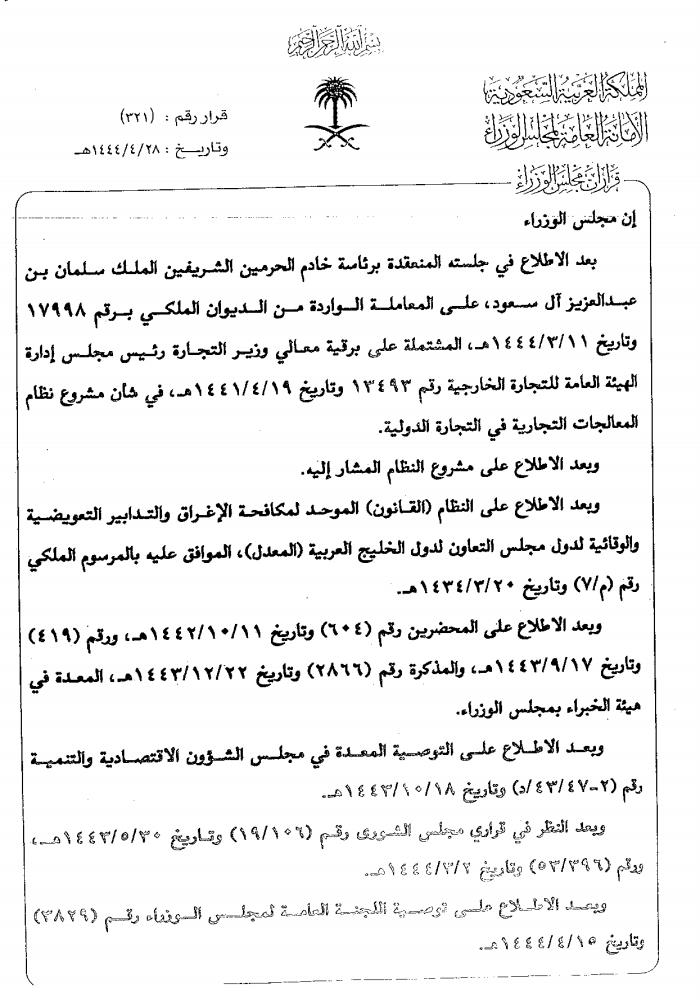 بسم الله الرحمن الرحيم
المملكة العربية السعودية
الأمانة العامة لمجلس الوزراء
قرار رقم : (٣٢١)
وتاريخ : ١٤٤٤/٤/٢٨هـ
قرارات مجلس الوزراء
إن مجلس الوزراء
بعد الاطلاع في جلسته المنعقدة برئاسة خادم الحرمين الشريفين الملك سلمان بن
عبدالعزيز آل سعود، على المعاملة الواردة من الديوان الملكي برقم ١٧٩٩٨
وتاريخ ١٤٤٤/٣/١١هـ، المشتملة على برقية معالي وزير التجارة رئيس مجلس إدارة
الهيئة العامة للتجارة الخارجية رقم ١٣٤٩٣ وتاريخ ١٤٤١/٤/١٩هـ، في شأن مشروع نظام
المعالجات التجارية في التجارة الدولية.
وبعد الاطلاع على مشروع النظام المشار إليه.
وبعد الاطلاع على النظام (القانون) الموحد لمكافحة الإغراق والتدابير التعويضية
والوقائية لدول مجلس التعاون لدول الخليج العربية (المعدل)، الموافق عليه بالمرسوم الملكي
رقم (م/٧) وتاريخ ١٤٣٤/٣/٢٠هـ.
وبعد الاطلاع على المحضرين رقم (٦٠٤) وتاريخ ١٤٤٢/١٠/١١هـ، ورقم (٤١٩)
وتاريخ ١٤٤٣/٩/١٧هـ، والمذكرة رقم (٢٨٦٦) وتاريخ ١٤٤٣/١٢/٢٢هـ، المعدة في
هيئة الخبراء بمجلس الوزراء.
وبعد الاطلاع على التوصية المعدة في مجلس الشؤون الاقتصادية والتنمية
رقم (٢-٤٣/٤٧/د) وتاريخ ١٤٤٣/١٠/١٨هـ.
وبعد النظر في قراري مجلس الشورى رقم (١٩/١٠٦) وتاريخ ١٤٤٣/٥/٣٠هـ،
ورقم (٥٣/٣٩٦) وتاريخ ١٤٤٤/٣/٢هـ.
وبعد الاطلاع على توصية اللجنة العامة لمجلس الوزراء رقم (٣٨٢٩)
وتاريخ ١٤٤٤/٤/١٥هـ.